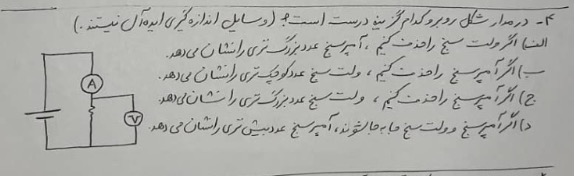 ۴- در مدار شکل روبرو کدام گزینه درست است؟ (وسایل اندازه گیری ایده آل نیستند.)
الف) اگر ولت سنج را حذف کنیم ، آمپرسنج عدد بزرگ تری را نشان می دهد.
ب) اگر آمپرسنج را حذف کنیم ، ولت سنج عدد کوچک تری را نشان می دهد.
ج) اگر آمپرسنج را حذف کنیم ، ولت سنج عدد بزرگ تری را نشان می دهد.
د) اگر آمپرسنج و ولت سنج جا به جا شوند، آمپرسنج عدد بیش تری را نشان می دهد.
A
V